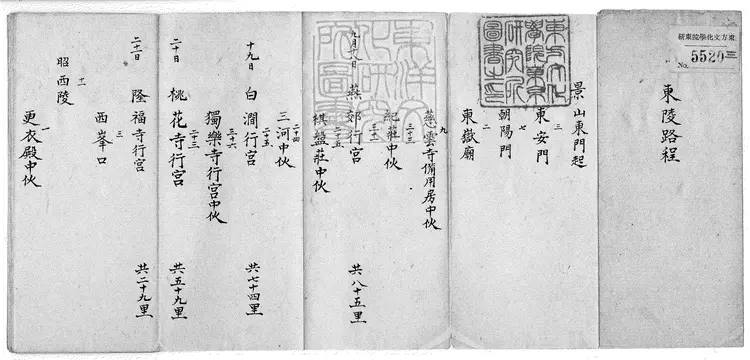 東方文化學院東研
No. 5520 三
東陵路程
東方文化學院東京研究所圖書之印
景山東門起
三
東安門
七
朝陽門
二
東嶽廟
九
慈雲寺備用房中伙
二十三
紀莊中伙
九月十八日
燕郊行宮
共八十五里
二十五
棋盤莊中伙
二十四
三河中伙
二十五
十九日
白澗行宮
共七十四里
三十六
獨樂寺行宮中伙
二十三
二十日
桃花寺行宮
共五十九里
二十一日
隆福寺行宮
共二十九里
三
西峯口
十一
昭西陵
一
更衣殿中伙